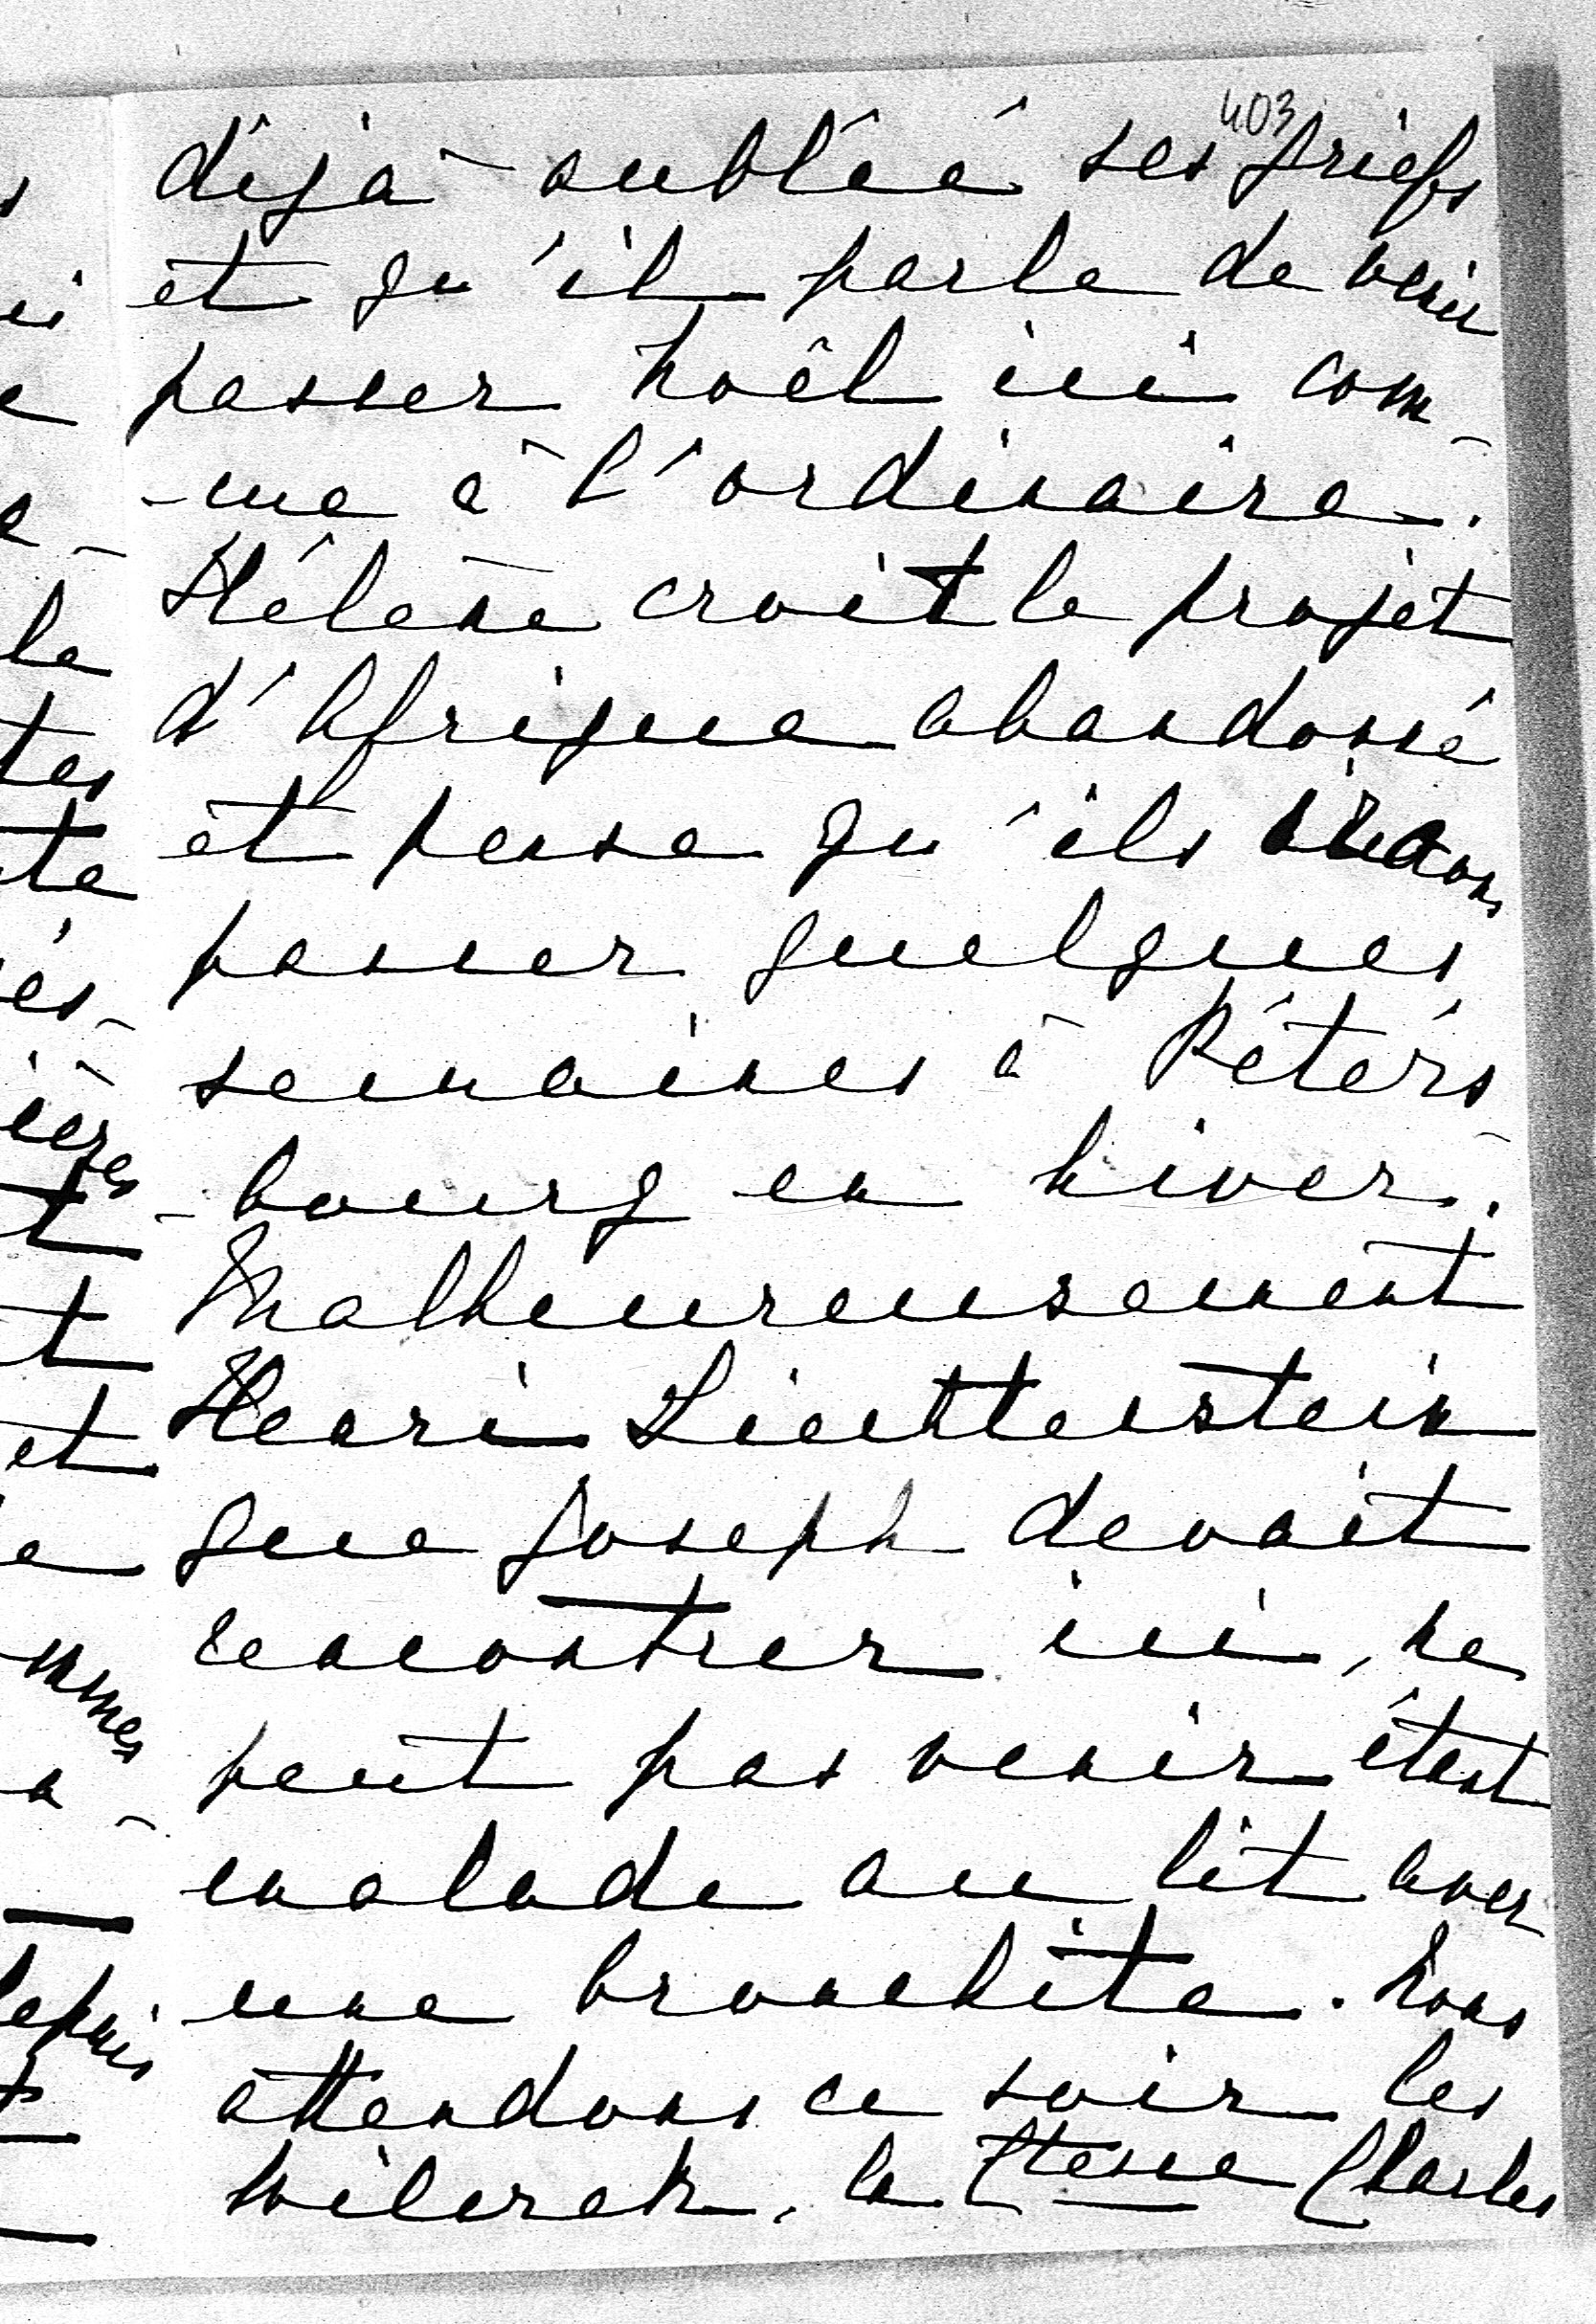 403
déjà oublié ses griefs
et qu'il parle de venir
passer Noël ici com-
-me à l'ordinaire.
Hélène croit le projet
d'Afrique abandonné
et pense qu'ils iront
passer quelques
semaines à Péters-
-bourg en hiver.
Malheureusement
Henri Liechtenstein
que Joseph devait
rencontrer ici, ne
peut pas venir étant
malade au lit avec
une bronchite. Nous
attendons ce soir les
Wilczek, la Ctesse Charles